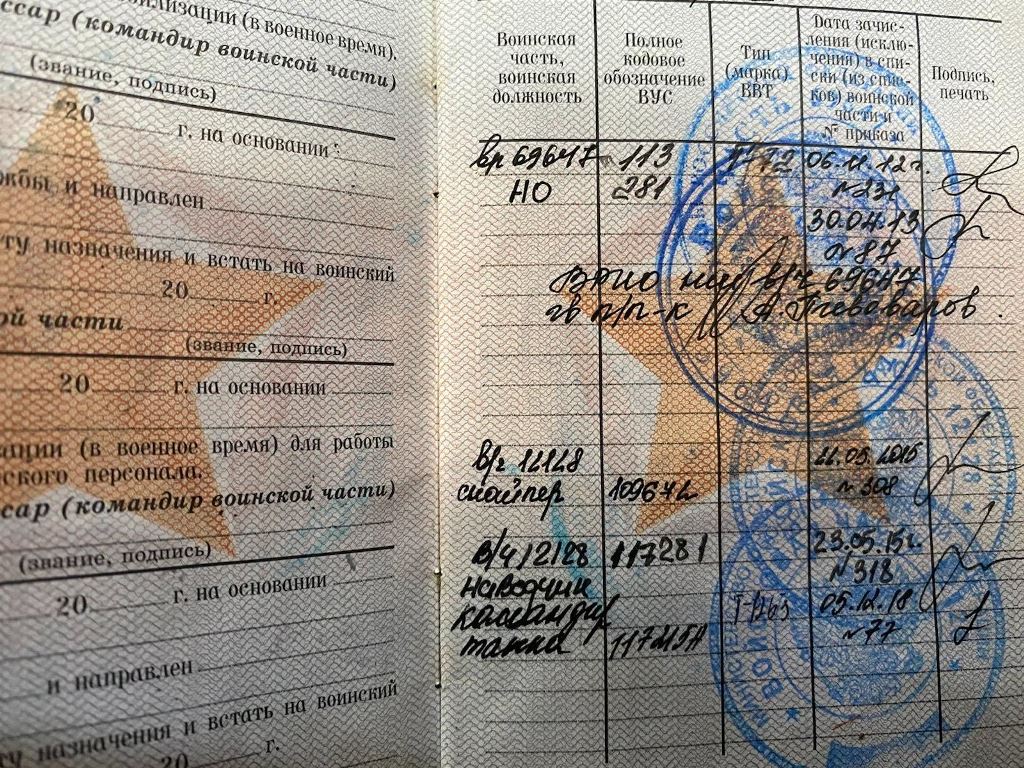 билизации (в военное время).
ссар (командир воинской части)
(звание, подпись)
20 г. на основании
жбы и направлен
ту назначения и встать на воинский
20 г.
ой части
(звание, подпись)
20 г. на основании
ации (в военное время) для работы
ского персонала.
ссар (командир воинской части)
(звание, подпись)
20 г. на основании
и направлен
ту назначения и встать на воинский
20 г.
Воинская часть, воинская должность
Полное кодовое обозначение ВУС
Тип (марка) ВВТ
Дата зачисления (исключения) в списки (из списков) воинской части и № приказа
Подпись, печать
69647 113 Т-72 06.11.12г.
НО 281
30.04.13
№87
в/ч 69647
гв п/п-к
в/ч 12128
снайпер 109672 №308
в/ч 12128 117281 23.05.15г.
наводчик №318
командир 05.12.18
танка №77